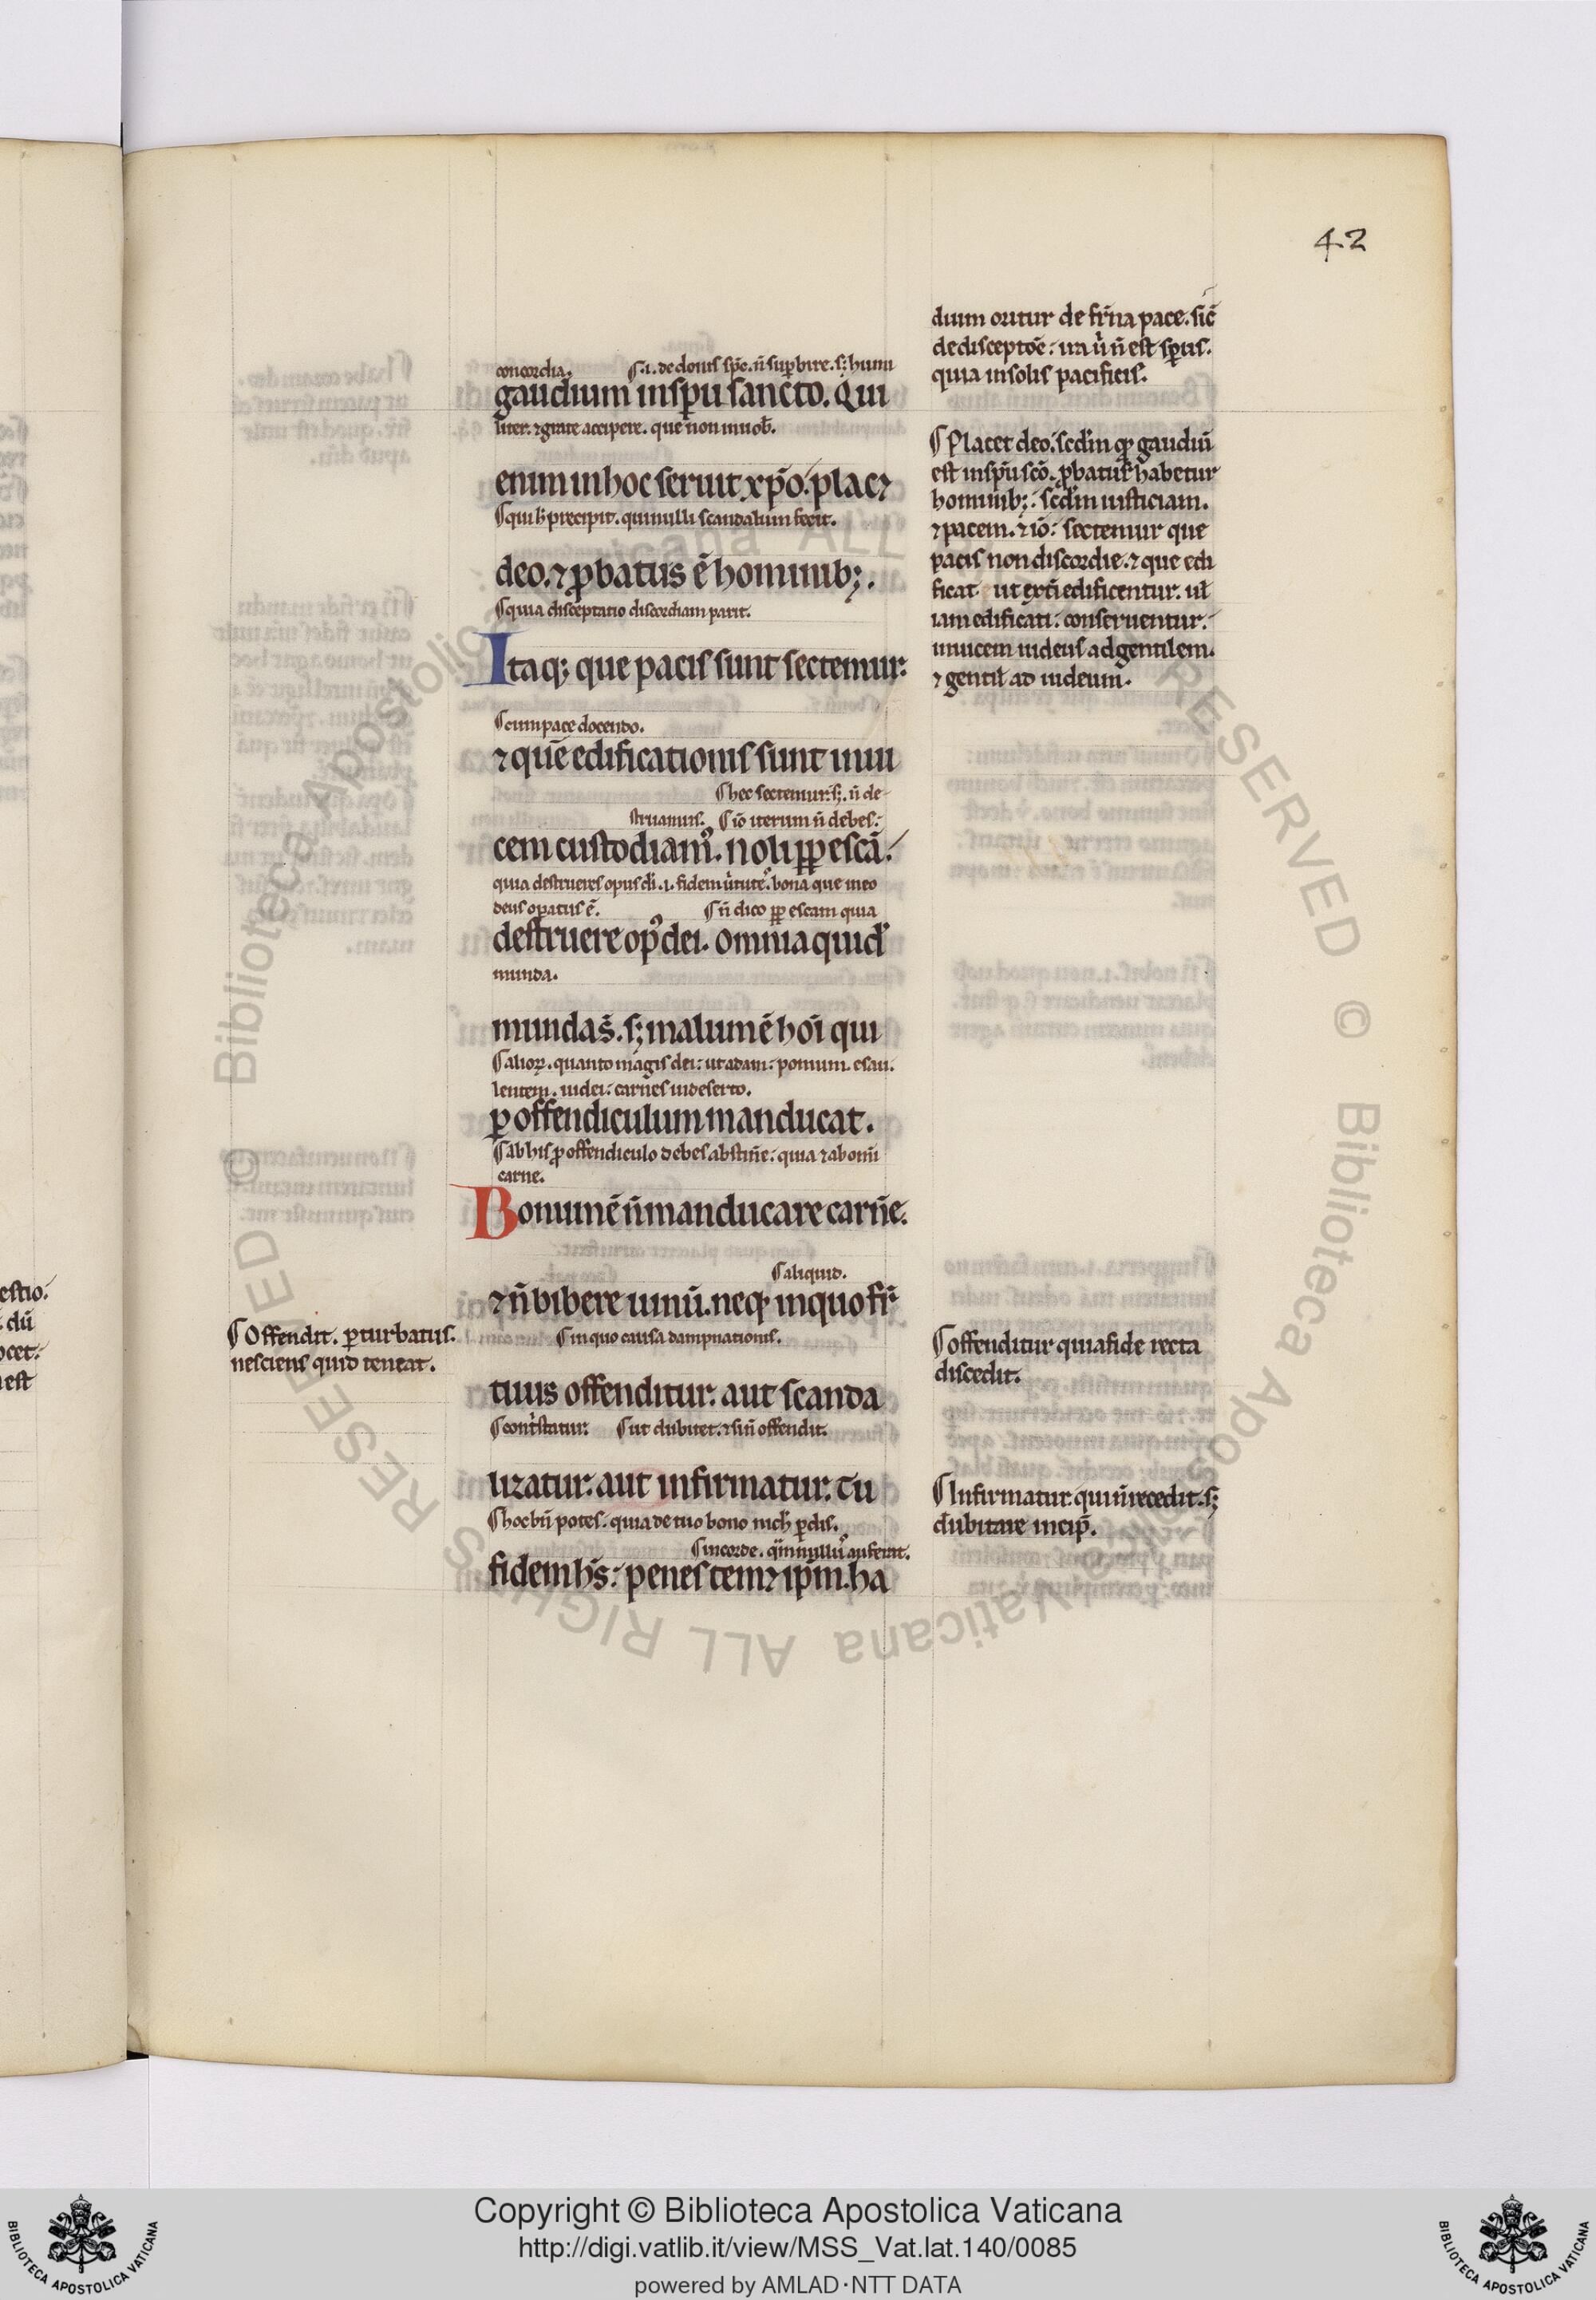 42
concordia. ¶.i. de donis spc̄. n̄ suꝑbire. s; humi
gaudium in sp̄u sancto. Qui
liter. ⁊ grate accipere. que non inuob̄.
enim in hoc seruit xp̄o. plac⁊
¶ qui h̄ precipit. qui nulli scandalum fecit.
deo. ⁊ ꝓbatus ē hominib;.
¶ quia disceptatio discordiam parit.
Itaq; que pacis sunt sectemur.
¶ cum pace docendo.
⁊ que edificationis sunt inui
¶ hec sectemur. s;. n̄ de
struamus. ¶ iō iterum n̄ debes.
cem custodiamꝰ. noli ꝓꝑ escā.
quia destrueres opus di. .i. fidem bona que in eo
deus oꝑatus ē. ¶ n̄ dico ꝓꝑ escam quia
destruere opꝰ dei. omnia quid̄
munda.
munda s̄. s; malum ē hōi qui
¶ alioꝝ. quanto magis dei. ut adam. pomum. esau.
lentem. iudei. carnes in deserto.
ꝑ offendiculum manducat.
¶ ab his ꝓ offendiculo debes abstinē. quia ⁊ ab omī
carne.
Bonum ē n̄ manducare carnē.
¶ aliquid.
⁊ n̄ bibere uinū. neq; in quo fr̄
¶ in quo causa dampnationis.
tuus offenditur. aut scanda
¶ contͥstatur. ¶ ut dubitet. ⁊ si n̄ offendit.
lizatur. aut infirmatur. Tu
¶ hoc bn̄ potes. quia de tuo bono nich̄ ꝑdis.
¶ in corde. nullꝰ auferat.
fidem h̄s. penes temet ip̄m. ha
dium oritur de fr̄na pace. sic̄
de disceptōe. ira ū n̄ est sp̄us.
quia in solis pacificis.
¶ Placet deo. scd̄m qd gaudiū
est in sp̄u scō. ꝓbatur habetur
hominib;. scd̄m iusticiam.
⁊ pacem. ⁊ iō. sectemur que
pacis non discordie. ⁊ que edi
ficat ut ext̄i edificentur. ul̄
iam edificati. conseruentur.
inuicem iudeus ad gentilem.
⁊ gentil̄ ad iudeum.
¶ Offendit. ꝑturbatus.
nesciens quid teneat.
¶ offenditur quia fide recta
discedit.
¶ Infirmatur. qui n̄ recedit. s;
dubitare incip̄.
estio.
. dū
ocet.
est
© Biblioteca Apostolica Vaticana ALL RIGHTS RESERVED © Biblioteca Apostolica Vaticana ALL RIGHTS RESERVED
Copyright © Biblioteca Apostolica Vaticana
http://digi.vatlib.it/view/MSS_Vat.lat.140/0085
powered by AMLAD·NTT DATA
BIBLIOTECA APOSTOLICA VATICANA
BIBLIOTECA APOSTOLICA VATICANA